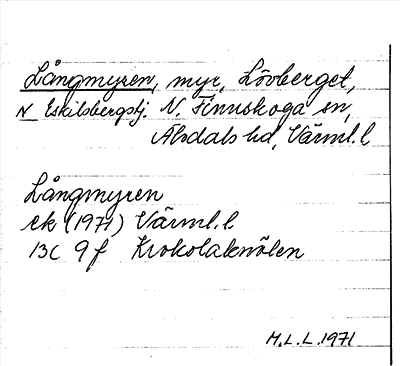 Långmyren, myr, Lövberget,
N Eskilsbergstj. N. Finnskoga sn,
Älvdals hd, Värml. l
Långmyren
ek (1971) Värml. l
13C 9f Krokolaknölen
M.L.L. 1971